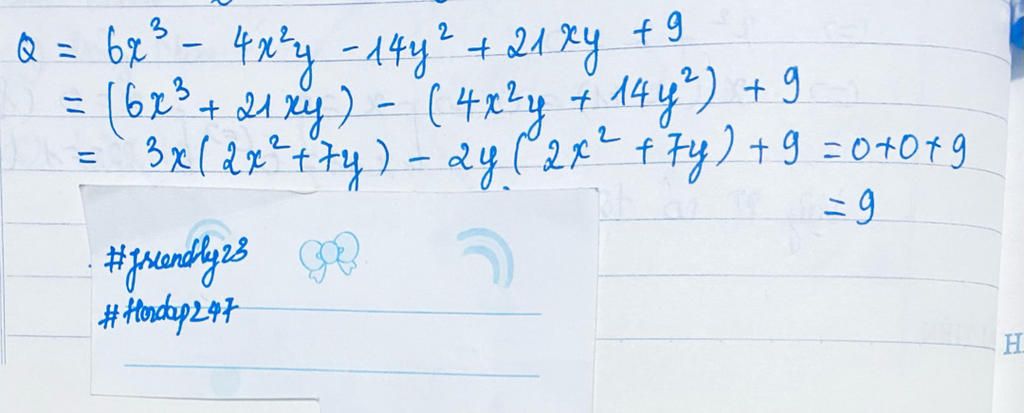 Q = 6x³ - 4x²y - 14y² + 21xy + 9
= (6x³ + 21xy) - (4x²y + 14y²) + 9
= 3x(2x² + 7y) - 2y(2x² + 7y) + 9 = 0 + 0 + 9
= 9
#friendly23
#Hoidap247
H